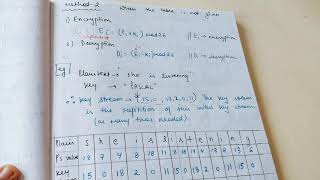 Method-2 when the table is not given
1) Encryption
Ei = (Pi + Ki) mod 26
2) Decryption
Di = (Ei - Ki) mod 26
Eg
Plaintext → she is listening
Key →
∴ Key stream → The key stream
is the repetition of this initial key stream
(as many times needed)
Plain s h e i s l i s t e n i n g
P's value 18 7 4 8 18 11 8 18 19 4 13 8 13 6
Key 15 0 18 2 0 11 15 0 18 2 0 11 15 0